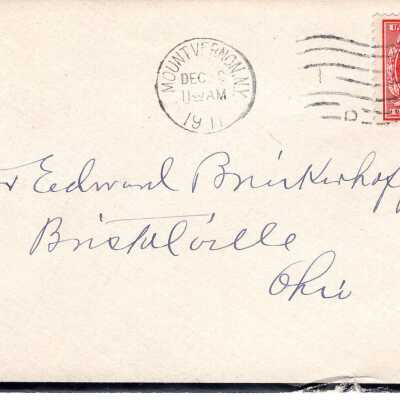 MOUNT VERNON, N.Y.
DEC
11 AM
1911
D
Edward Brinkerhoff
Bristolville
Ohio